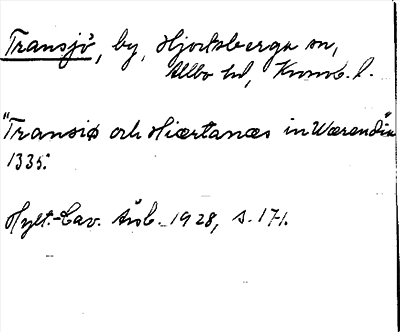 Transjö, by, Hjortsberga sn,
Allbo hd, Kronob. l.
"Transiø och Hiærtanæs in Wærendia"
1335.
Hylt.-Cav. årsb. 1928, s. 171.